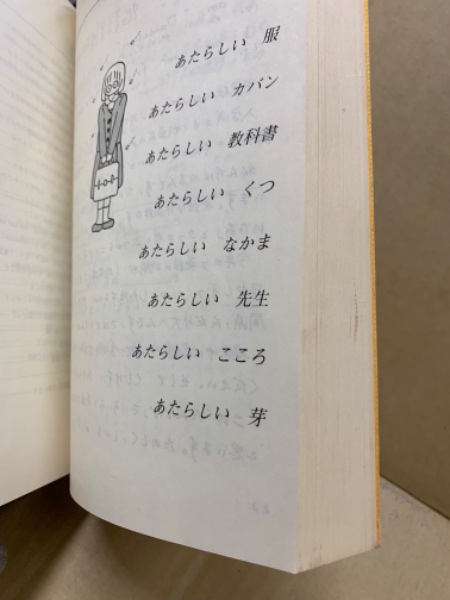 あたらしい 服
あたらしい カバン
あたらしい 教科書
あたらしい くつ
あたらしい なかま
あたらしい 先生
あたらしい こころ
あたらしい 芽